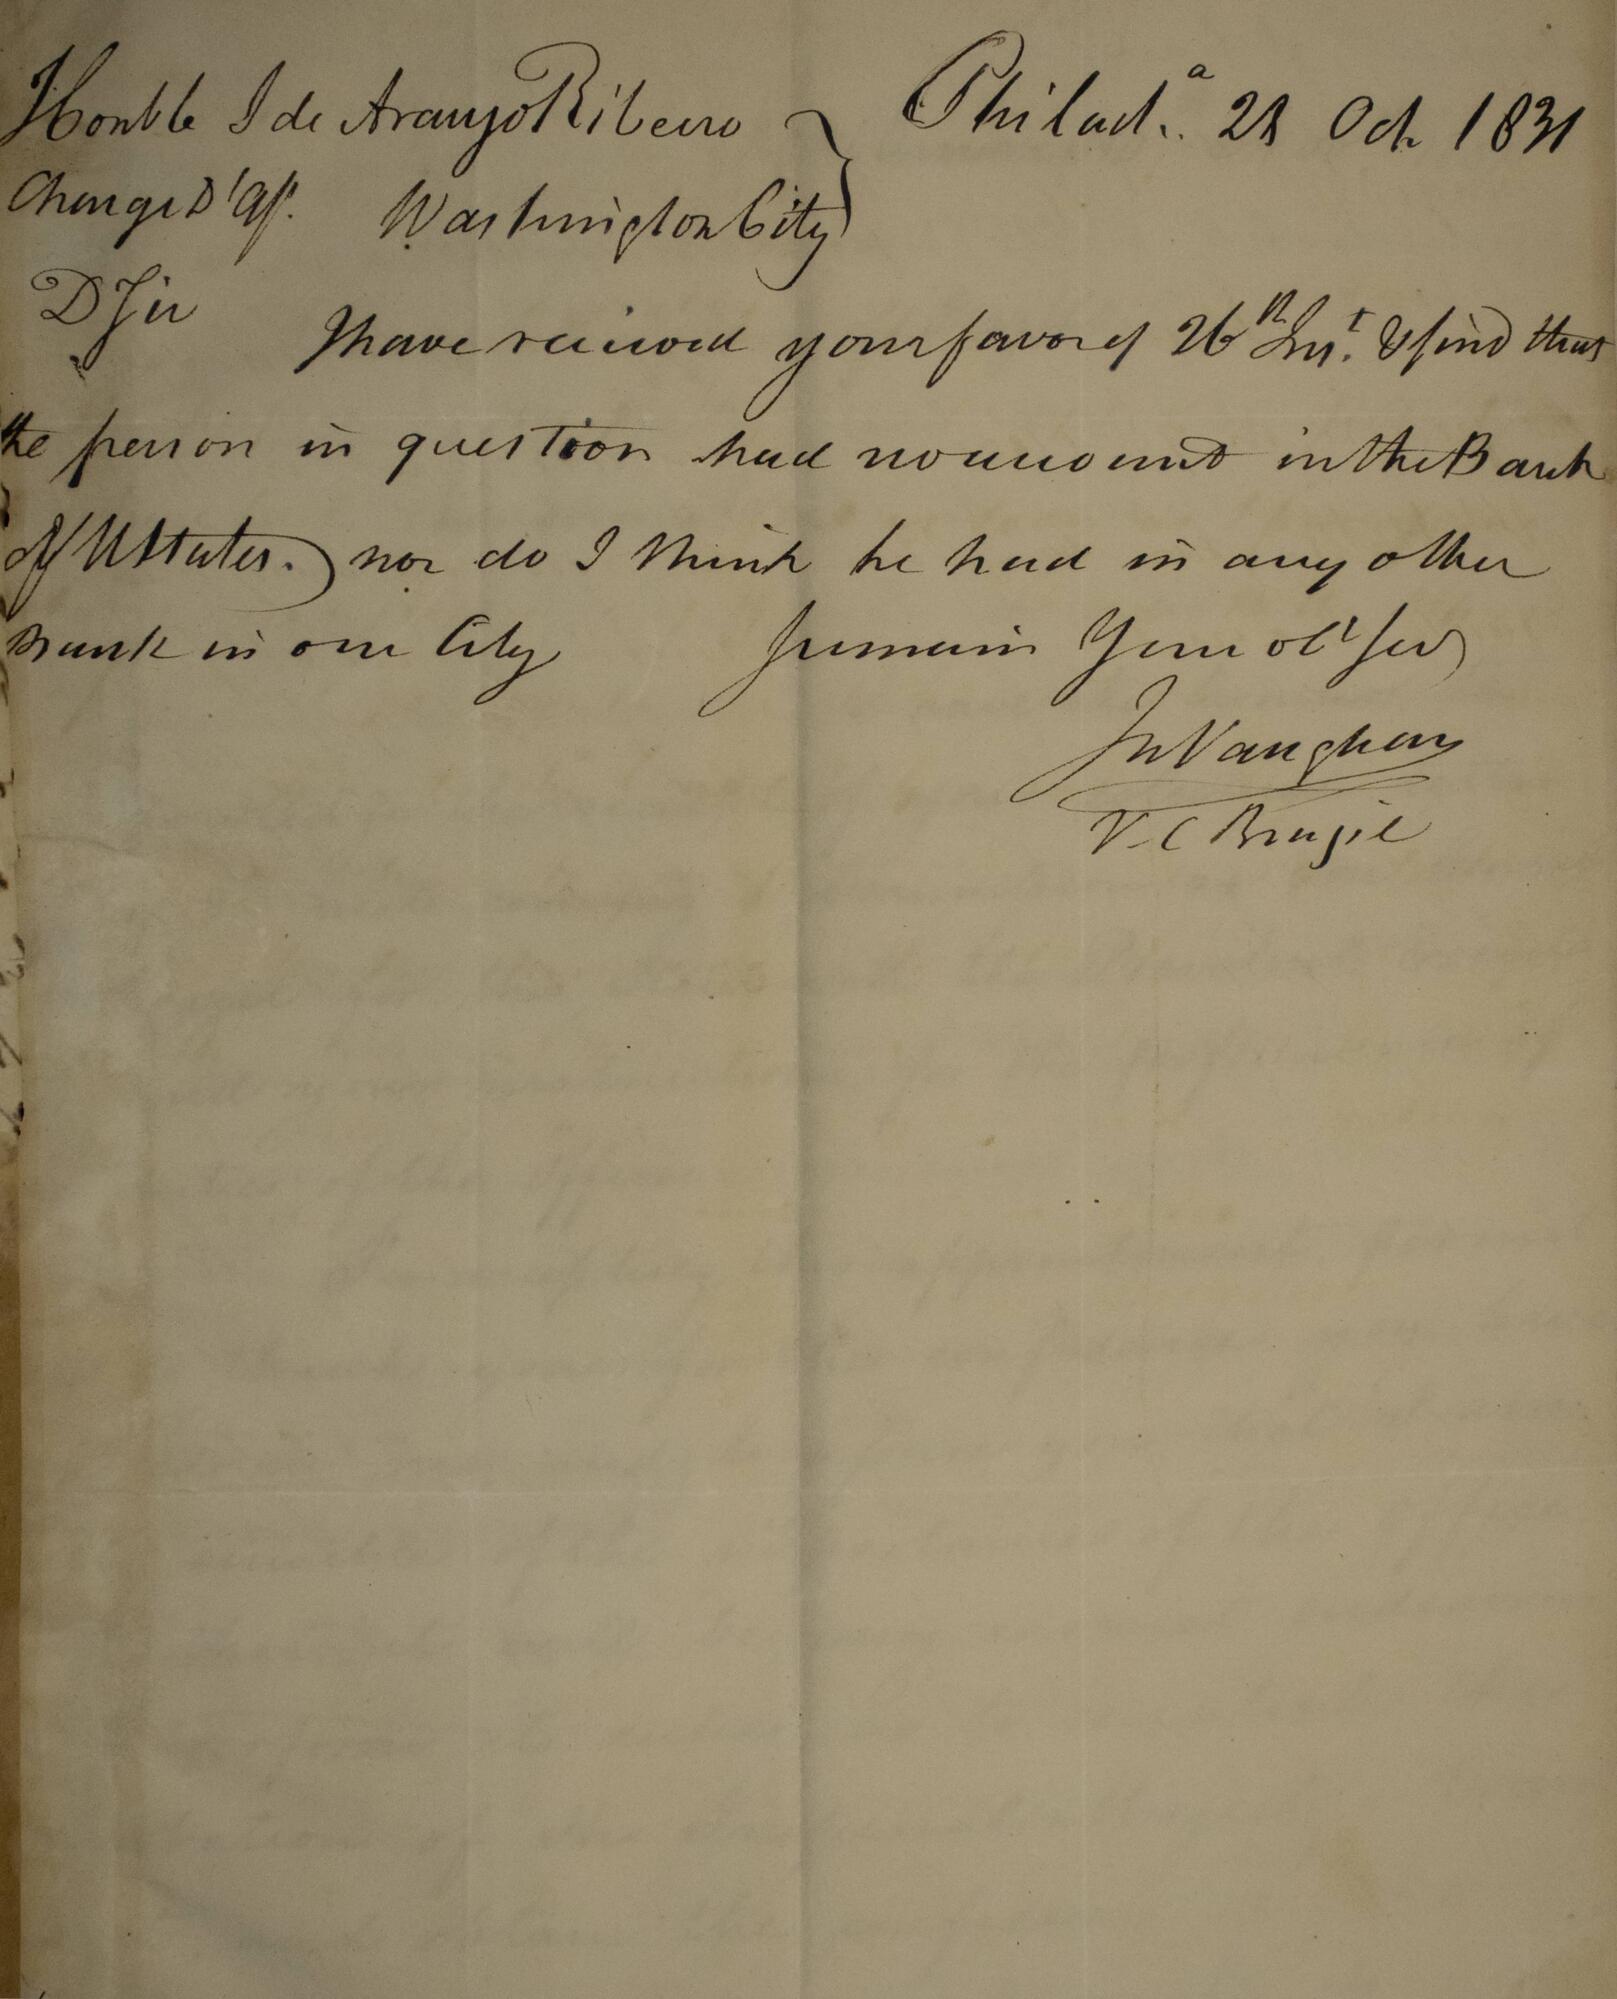 Honble J de Araujo Ribeiro Philad.ª 28 Oct 1831
Charge D'Aff. Washington City
D Sir
I have received your favor of 26th Inst. & find that
the person in question had no account in the Bank
of UStates. nor do I think he had in any other
Bank in our City I remain Your obt Ser
Jn Vaughan
V. C Brazil